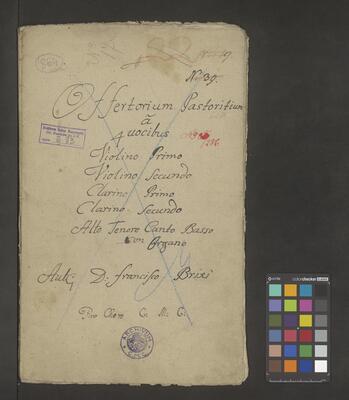 No 39.
Offertorium Pastoritium
â
4 vocibus
Violino Primo
Violino Secundo
Clarino Primo
Clarino Secundo
Alto Tenore Canto Basso
con Organo
D: Francisco Brixi
Pro Choro C. M. C.
ARCHIVUM